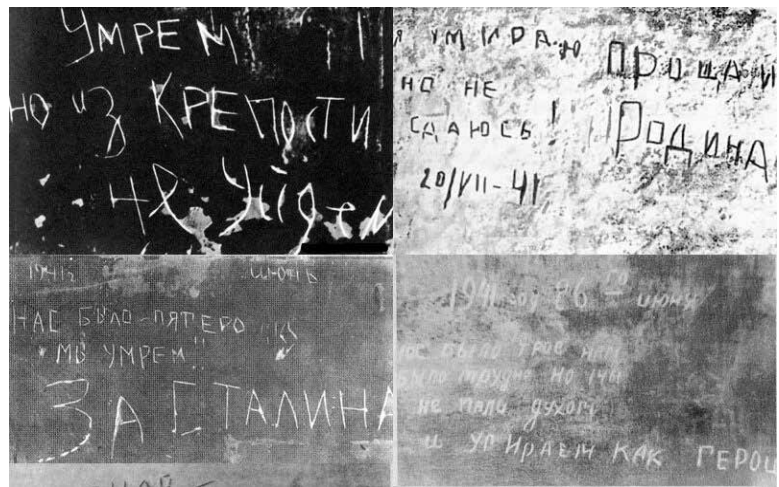 УМРЕМ
НО ИЗ КРЕПОСТИ
НЕ УЙДЕМ
Я УМИРАЮ
НО НЕ
СДАЮСЬ!
20/VII-41
ПРОЩАЙ
РОДИНА
1941г июнь
НАС БЫЛО ПЯТЕРО
МЫ УМРЕМ!!
ЗА СТАЛИНА
1941 год 26 го июнь
нас было трое нам
было трудно но мы
не пали духом
и умираем КАК ГЕРОИ